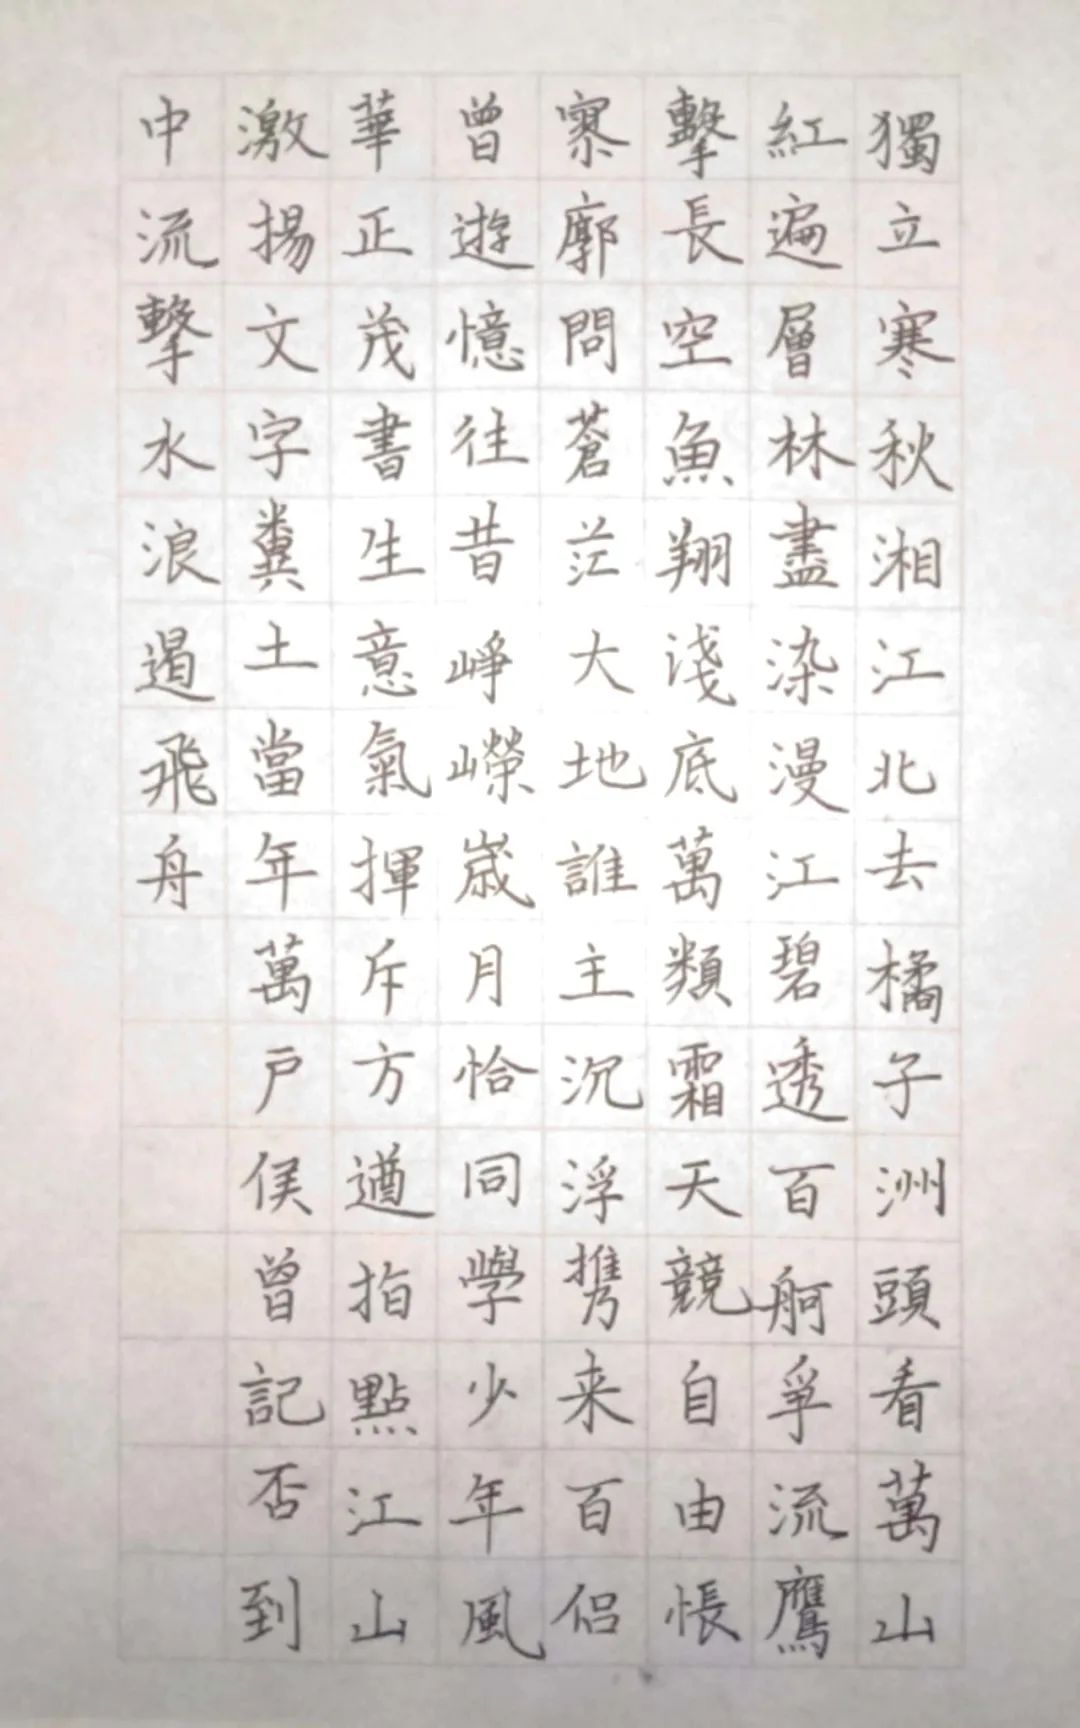 獨立寒秋湘江北去橘子洲頭看萬山
紅遍層林盡染漫江碧透百舸爭流鷹
擊長空魚翔淺底萬類霜天競自由悵
寥廓問蒼茫大地誰主沉浮携来百侣
曾遊憶往昔崢嶸歲月恰同學少年風
華正茂書生意氣揮斥方遒指點江山
激揚文字糞土當年萬戶侯曾記否到
中流擊水浪遏飛舟